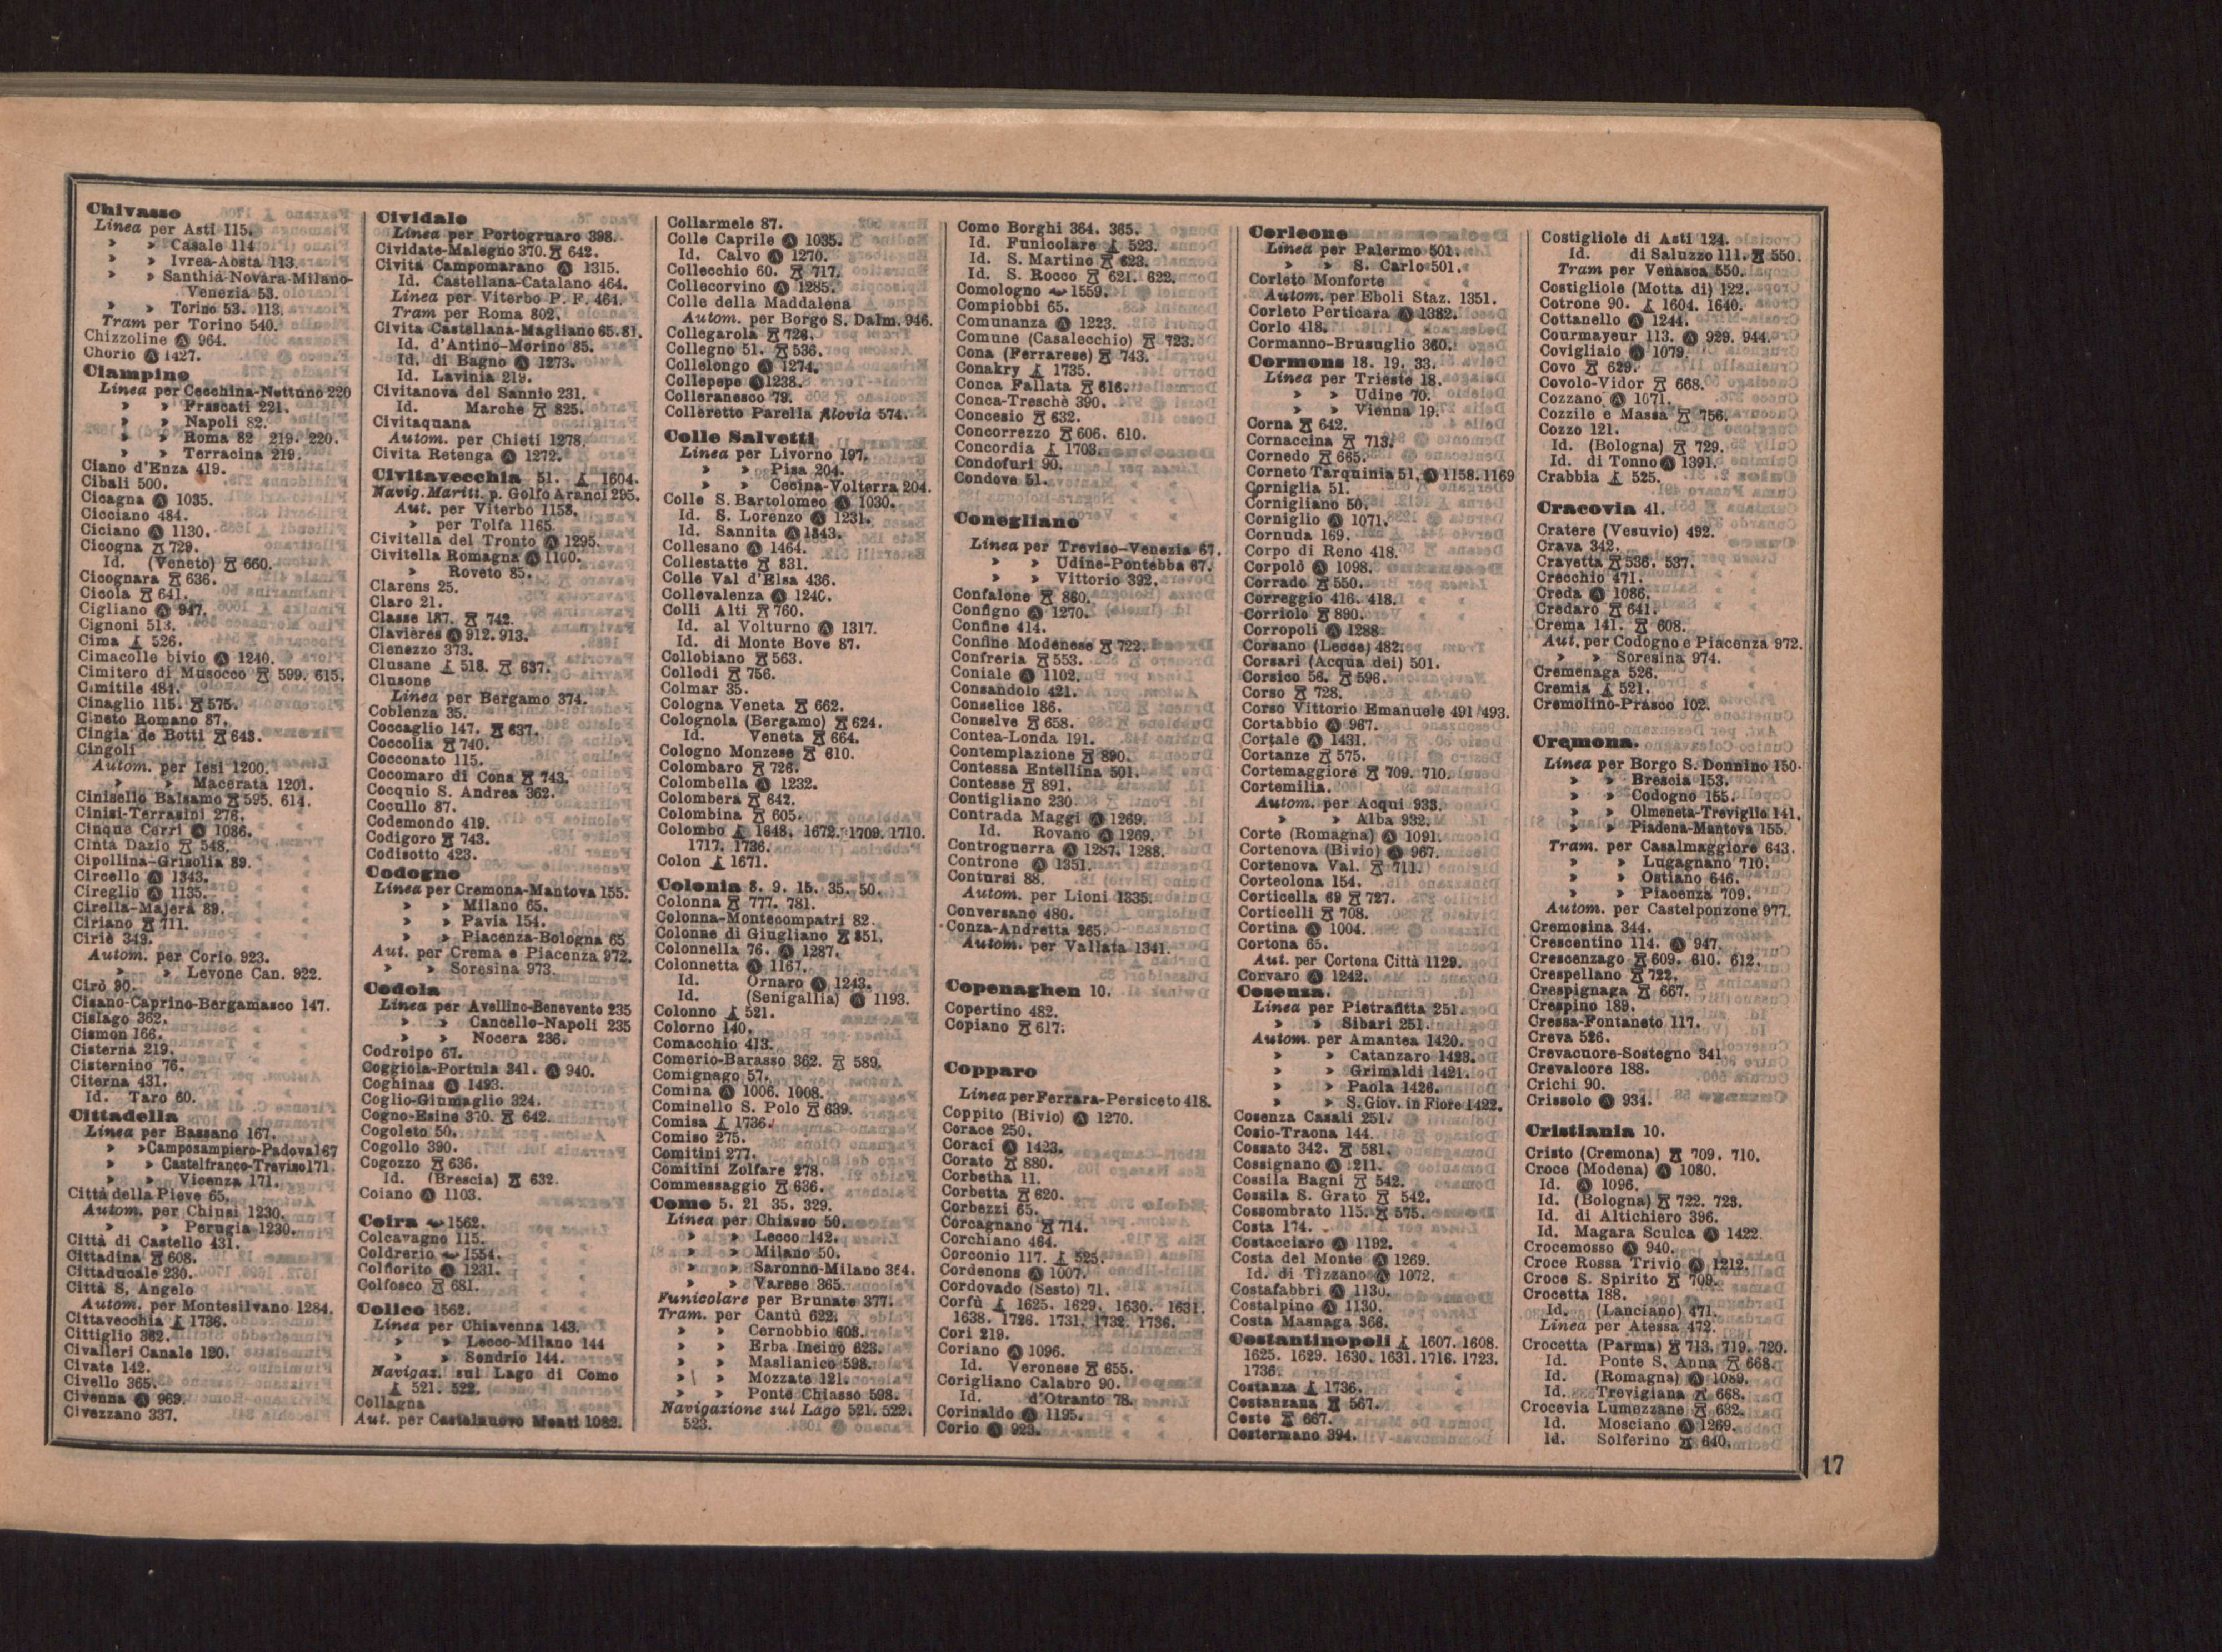 Chivasso
Linea per Asti 115.
» » Casale 114
» » Ivrea-Aosta 113.
» » Santhià-Novara-Milano-
Venezia 53.
» » Torino 53. 113.
Tram per Torino 540.
Chizzoline Ⓐ 964.
Chorio Ⓐ 1427.
Ciampino
Linea per Cecchina-Nettuno 220
» » Frascati 221.
» » Napoli 82.
» » Roma 82 219. 220.
» » Terracina 219.
Ciano d'Enza 419.
Cibali 500.
Cicagna Ⓐ 1035.
Cicciano 484.
Ciciano Ⓐ 1130.
Cicogna 729.
Id. (Veneto) 660.
Cicognara 636.
Cicola 641.
Cigliano Ⓐ 947.
Cignoni 513.
Cima 526.
Cimacolle bivio Ⓐ 1240.
Cimitero di Musocco 599. 615.
Cimitile 484.
Cinaglio 115. 575.
Cineto Romano 87.
Cingia de Botti 643.
Cingoli
Autom. per Iesi 1200.
» » Macerata 1201.
Cinisello Balsamo 595. 614.
Cinisi-Terrasini 276.
Cinque Cerri Ⓐ 1086.
Cinta Dazio 548.
Cipollina-Grisolia 89.
Circello Ⓐ 1343.
Cireglio Ⓐ 1135.
Cirella-Majerà 89.
Ciriano 711.
Ciriè 349.
Autom. per Corio 923.
» » Levone Can. 922.
Cirò 90.
Cisano-Caprino-Bergamasco 147.
Cislago 362.
Cismon 166.
Cisterna 219.
Cisternino 76.
Citerna 431.
Id. Taro 60.
Cittadella
Linea per Bassano 167.
» » Camposampiero-Padova 167
» » Castelfranco-Treviso 171.
» » Vicenza 171.
Città della Pieve 65.
Autom. per Chiusi 1230.
» » Perugia 1230.
Città di Castello 431.
Cittadina 608.
Cittaducale 230.
Città S. Angelo
Autom. per Montesilvano 1284.
Cittavecchia 1736.
Cittiglio 362.
Civalleri Canale 120.
Civate 142.
Civello 365.
Civenna Ⓐ 969.
Civezzano 337.
Cividale
Linea per Portogruaro 398.
Cividate-Malegno 370. 642.
Civita Campomarano Ⓐ 1315.
Id. Castellana-Catalano 464.
Linea per Viterbo P. F. 464.
Tram per Roma 802.
Civita Castellana-Magliano 65. 81.
Id. d'Antino-Morino 85.
Id. di Bagno Ⓐ 1273.
Id. Lavinia 219.
Civitanova del Sannio 231.
Id. Marche 825.
Civitaquana
Autom. per Chieti 1278.
Civita Retenga Ⓐ 1272.
Civitavecchia 51. 1604.
Navig. Maritt. p. Golfo Aranci 295.
Aut. per Viterbo 1158.
» per Tolfa 1165.
Civitella del Tronto Ⓐ 1295.
Civitella Romagna Ⓐ 1100.
» Roveto 85.
Clarens 25.
Claro 21.
Classe 187. 742.
Clavières Ⓐ 912. 913.
Clenezzo 373.
Clusane 518. 637.
Clusone
Linea per Bergamo 374.
Coblenza 35.
Coccaglio 147. 637.
Coccolia 740.
Cocconato 115.
Cocomaro di Cona 743.
Cocquio S. Andrea 362.
Cocullo 87.
Codemondo 419.
Codigoro 743.
Codisotto 423.
Codogno
Linea per Cremona-Mantova 155.
» » Milano 65.
» » Pavia 154.
» » Piacenza-Bologna 65
Aut. per Crema e Piacenza 972.
» » Soresina 973.
Codola
Linea per Avellino-Benevento 235
» » Cancello-Napoli 235
» » Nocera 236.
Codroipo 67.
Coggiola-Portula 341. Ⓐ 940.
Coghinas Ⓐ 1493.
Coglio-Giumaglio 324.
Cogno-Esine 370. 642.
Cogoleto 50.
Cogollo 390.
Cogozzo 636.
Id. (Brescia) 632.
Coiano Ⓐ 1103.
Coira 1562.
Colcavagno 115.
Coldrerio 1554.
Colfiorito Ⓐ 1231.
Colfosco 681.
Colico 1562.
Linea per Chiavenna 143.
» » Lecco-Milano 144
» » Sondrio 144.
Navigaz. sul Lago di Como
521. 522.
Collagna
Aut. per Castelnuovo Monti 1082.
Collarmele 87.
Colle Caprile Ⓐ 1035.
Id. Calvo Ⓐ 1270.
Collecchio 60. 717.
Collecorvino Ⓐ 1285.
Colle della Maddalena
Autom. per Borgo S. Dalm. 946.
Collegarola 726.
Collegno 51. 536.
Collelongo Ⓐ 1274.
Collepepe Ⓐ 1238.
Colleranesco 79.
Colleretto Parella Flovia 574.
Colle Salvetti
Linea per Livorno 197.
» » Pisa 204.
» » Cecina-Volterra 204.
Colle S. Bartolomeo Ⓐ 1030.
Id. S. Lorenzo Ⓐ 1231.
Id. Sannita Ⓐ 1343.
Collesano Ⓐ 1464.
Collestatte 831.
Colle Val d'Elsa 436.
Collevalenza Ⓐ 1240.
Colli Alti 760.
Id. al Volturno Ⓐ 1317.
Id. di Monte Bove 87.
Collobiano 563.
Collodi 756.
Colmar 35.
Cologna Veneta 662.
Colognola (Bergamo) 624.
Id. Veneta 664.
Cologno Monzese 610.
Colombaro 726.
Colombella Ⓐ 1232.
Colombera 642.
Colombina 605.
Colombo 1648. 1672. 1709. 1710.
1717. 1736.
Colon 1671.
Colonia 8. 9. 15. 35. 50.
Colonna 777. 781.
Colonna-Montecompatri 82.
Colonne di Giugliano 851.
Colonnella 76. Ⓐ 1287.
Colonnetta Ⓐ 1167.
Id. Ornaro Ⓐ 1243.
Id. (Senigallia) Ⓐ 1193.
Colonno 521.
Colorno 140.
Comacchio 413.
Comerio-Barasso 362. 589.
Comignago 57.
Comina Ⓐ 1006. 1008.
Cominello S. Polo 639.
Comisa 1736.
Comiso 275.
Comitini 277.
Comitini Zolfare 278.
Commessaggio 636.
Como 5. 21 35. 329.
Linea per Chiasso 50.
» » Lecco 142.
» » Milano 50.
» » Saronno-Milano 364.
» » Varese 365.
Funicolare per Brunate 377.
Tram. per Cantù 622.
» » Cernobbio 603.
» » Erba Incino 623.
» » Maslianico 598.
» » Mozzate 121.
» » Ponte Chiasso 598.
Navigazione sul Lago 521. 522.
523.
Como Borghi 364. 365.
Id. Funicolare 523.
Id. S. Martino 623.
Id. S. Rocco 621. 622.
Comologno 1559.
Compiobbi 65.
Comunanza Ⓐ 1223.
Comune (Casalecchio) 723.
Cona (Ferrarese) 743.
Conakry 1735.
Conca Fallata 616.
Conca-Treschè 390.
Concesio 632.
Concorrezzo 606. 610.
Concordia 1703.
Condofuri 90.
Condove 51.
Conegliano
Linea per Treviso-Venezia 67.
» » Udine-Pontebba 67.
» » Vittorio 392.
Confalone 860.
Configno Ⓐ 1270.
Confine 414.
Confine Modenese 722.
Confreria 553.
Coniale Ⓐ 1102.
Consandolo 421.
Conselice 186.
Conselve 658.
Contea-Londa 191.
Contemplazione 890.
Contessa Entellina 501.
Contesse 891.
Contigliano 230
Contrada Maggi Ⓐ 1269.
Id. Rovano Ⓐ 1269.
Controguerra Ⓐ 1287. 1288.
Controne Ⓐ 1351.
Contursi 88.
Autom. per Lioni 1335.
Conversano 480.
Conza-Andretta 265.
Autom. per Vallata 1341.
Copenaghen 10.
Copertino 482.
Copiano 617.
Copparo
Linea per Ferrara-Persiceto 418.
Coppito (Bivio) Ⓐ 1270.
Corace 250.
Coraci Ⓐ 1423.
Corato 880.
Corbetha 11.
Corbetta 620.
Corbezzi 65.
Corcagnano 714.
Corchiano 464.
Corconio 117. 525.
Cordenons Ⓐ 1007.
Cordovado (Sesto) 71.
Corfù 1625. 1629. 1630. 1631.
1638. 1726. 1731. 1732. 1736.
Cori 219.
Coriano Ⓐ 1096.
Id. Veronese 655.
Corigliano Calabro 90.
Id. d'Otranto 78.
Corinaldo Ⓐ 1195.
Corio Ⓐ 923.
Corleone
Linea per Palermo 501.
» » S. Carlo 501.
Corleto Monforte
Autom. per Eboli Staz. 1351.
Corleto Perticara Ⓐ 1382.
Corlo 418.
Cormanno-Brusuglio 360.
Cormons 18. 19. 33.
Linea per Trieste 18.
» » Udine 70.
» » Vienna 19.
Corna 642.
Cornaccina 713.
Cornedo 665.
Corneto Tarquinia 51. Ⓐ 1158. 1169
Corniglia 51.
Cornigliano 50.
Corniglio Ⓐ 1071.
Cornuda 169.
Corpo di Reno 418.
Corpolò Ⓐ 1098.
Corrado 550.
Correggio 416. 418.
Corriolo 890.
Corropoli Ⓐ 1288.
Corsano (Lecce) 482.
Corsari (Acqua dei) 501.
Corsico 56. 596.
Corso 728.
Corso Vittorio Emanuele 491 493.
Cortabbio Ⓐ 967.
Cortale Ⓐ 1431.
Cortanze 575.
Cortemaggiore 709. 710.
Cortemilia.
Autom. per Acqui 933.
» » Alba 932.
Corte (Romagna) Ⓐ 1091.
Cortenova (Bivio) Ⓐ 967.
Cortenova Val. 711.
Corteolona 154.
Corticella 69 727.
Corticelli 708.
Cortina Ⓐ 1004.
Cortona 65.
Aut. per Cortona Città 1129.
Corvaro Ⓐ 1242.
Cosenza.
Linea per Pietrafitta 251.
» » Sibari 251.
Autom. per Amantea 1420.
» » Catanzaro 1423.
» » Grimaldi 1421.
» » Paola 1426.
» » S. Giov. in Fiore 1422.
Cosenza Casali 251.
Cosio-Traona 144.
Cossato 342. 581.
Cossignano Ⓐ 1211.
Cossila Bagni 542.
Cossila S. Grato 542.
Cossombrato 115. 575.
Costa 174.
Costacciaro Ⓐ 1192.
Costa del Monte Ⓐ 1269.
Id. di Tizzano Ⓐ 1072.
Costafabbri Ⓐ 1130.
Costalpino Ⓐ 1130.
Costa Masnaga 366.
Costantinopoli 1607. 1608.
1625. 1629. 1630. 1631. 1716. 1723.
1736.
Costanza 1736.
Costanzana 567.
Coste 667.
Costermano 394.
Costigliole di Asti 124.
Id. di Saluzzo 111. 550.
Tram per Venasca 550.
Costigliole (Motta di) 122.
Cotrone 90. 1604. 1640.
Cottanello Ⓐ 1244.
Courmayeur 113. Ⓐ 929. 944.
Covigliaio Ⓐ 1079.
Covo 629.
Covolo-Vidor 668.
Cozzano Ⓐ 1071.
Cozzile e Massa 756.
Cozzo 121.
Id. (Bologna) 729.
Id. di Tonno Ⓐ 1391.
Crabbia 525.
Cracovia 41.
Cratere (Vesuvio) 492.
Crava 342.
Cravetta 536. 537.
Crecchio 471.
Creda Ⓐ 1086.
Credaro 641.
Crema 141. 608.
Aut. per Codogno e Piacenza 972.
» » Soresina 974.
Cremenaga 526.
Cremia 521.
Cremolino-Prasco 102.
Cremona.
Linea per Borgo S. Donnino 150.
» » Brescia 153.
» » Codogno 155.
» » Olmeneta-Treviglio 141.
» » Piadena-Mantova 155.
Tram. per Casalmaggiore 643.
» » Lugagnano 710.
» » Ostiano 646.
» » Piacenza 709.
Autom. per Castelponzone 977.
Cremosina 344.
Crescentino 114. Ⓐ 947.
Crescenzago 609. 610. 612.
Crespellano 722.
Crespignaga 667.
Crespino 189.
Cressa-Fontaneto 117.
Creva 526.
Crevacuore-Sostegno 341
Crevalcore 188.
Crichi 90.
Crissolo Ⓐ 934.
Cristiania 10.
Cristo (Cremona) 709. 710.
Croce (Modena) Ⓐ 1080.
Id. Ⓐ 1096.
Id. (Bologna) 722. 723.
Id. di Altichiero 396.
Id. Magara Sculca Ⓐ 1422.
Crocemosso Ⓐ 940.
Croce Rossa Trivio Ⓐ 1212.
Croce S. Spirito 709.
Crocetta 188.
Id. (Lanciano) 471.
Linea per Atessa 472.
Crocetta (Parma) 713. 719. 720.
Id. Ponte S. Anna 668.
Id. (Romagna) Ⓐ 1089.
Id. Trevigiana 668.
Crocevia Lumezzane 632.
Id. Mosciano Ⓐ 1269.
Id. Solferino 640.
17